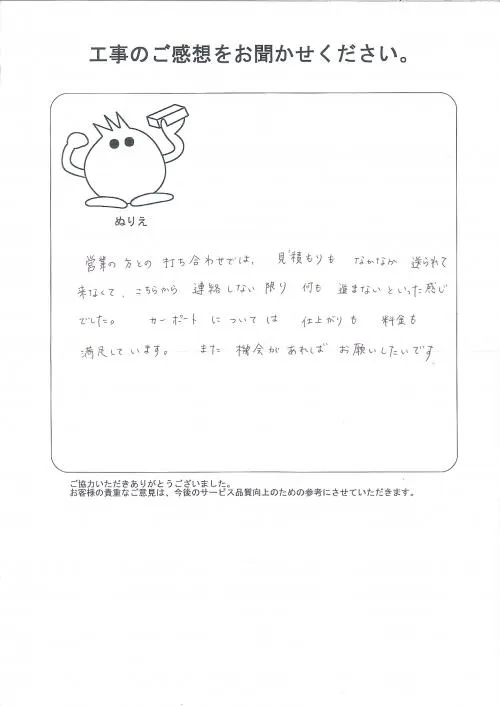 工事のご感想をお聞かせください。
ぬりえ
営業の方との打ち合わせでは、見積もりもなかなか送られて
来なくて、こちらから連絡しない限り何も進まないといった感じ
でした。カーポートについては仕上がりも料金も
満足しています。また機会があればお願いしたいです。
ご協力いただきありがとうございました。
お客様の貴重なご意見は、今後のサービス品質向上のための参考にさせていただきます。